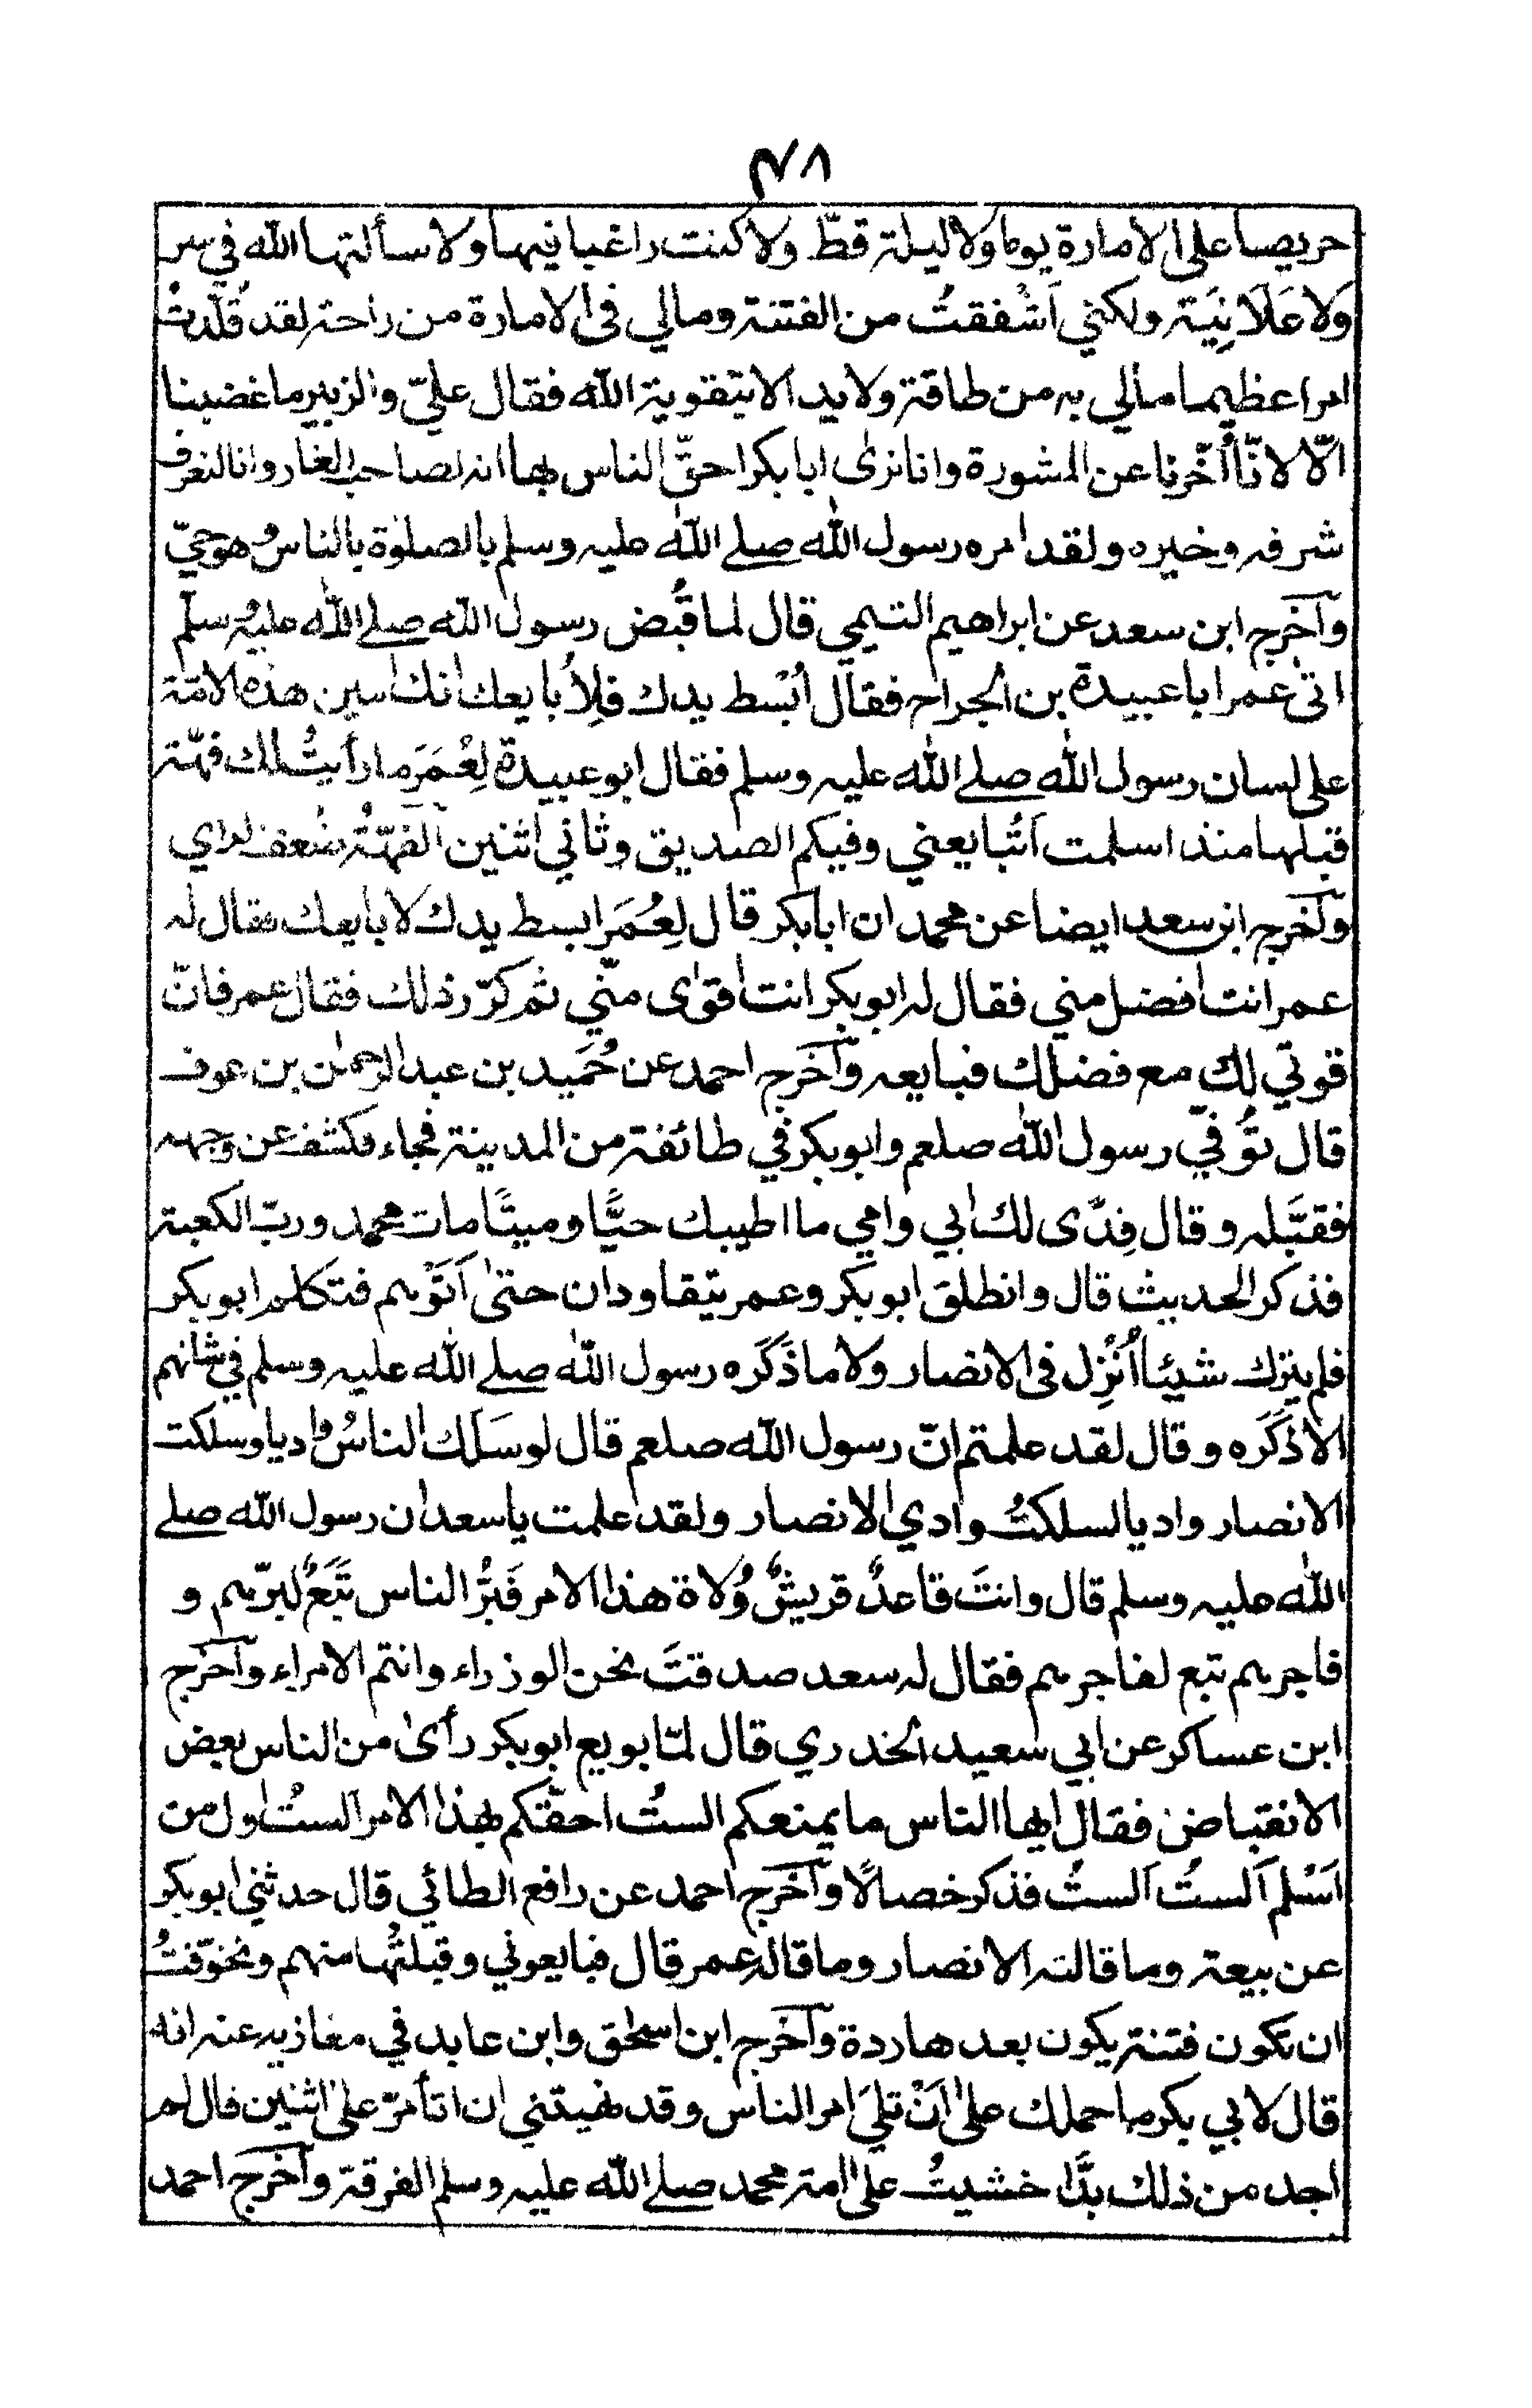 ۴۸
حريصا على الامارة يوما ولا ليلة قطّ ولا كنت راغبا فيها ولا سألتها الله في سر
ولا عَلَانِيَة ولكني اَشْفقتُ من الفتنة ومالي فى الامارة من راحة لقد قُلّدتُ
امرا عظيما مالي به من طاقة ولا يد الا بتقوية الله فقال عليّ والزبير ما غضبنا
الّا لانّا اُخّرنا عن المشورة وانا نرٰى ابا بكر احقّ الناس بها انه لصاحب الغار وانا لنعرف
شرفه وخيره ولقد امره رسول الله صلے الله عليه وسلم بالصلوٰة بالناس وهو حيّ
وآخرج ابن سعد عن ابراهيم التيمي قال لما قُبض رسول الله صلے الله عليه وسلم
اتٰى عمر ابا عبيدة بن الجراح فقال اُبْسط يدك فلِاُبايعك انك امين هذه الامّة
على لسان رسول الله صلے الله عليه وسلم فقال ابو عبيدة لِعُمَرَ ما رأيتُ لك فهّة
قبلها منذ اسلمت اَتُبايعني وفيكم الصديق وثاني اثنين الفهّةُ ضُعف الراي
وآخرج ابن سعد ايضا عن محمد ان ابا بكر قال لِعُمَرَ ابسط يدك لابايعك فقال له
عمر انت افضل مني فقال له ابو بكر انت اقوٰى منّي ثم كرّر ذلك فقال عمر فانّ
قوتي لك مع فضلك فبايعه وآخرج احمد عن حُمَيد بن عبد الرحمٰن بن عوف
قال تُوُفّيَ رسول الله صلعم وابو بكر في طائفة من المدينة فجاء فكشف عن وجهه
فقبَّله وقال فِدًى لك ابي وامي ما اطيبك حيًّا وميتًا مات محمد ورب الكعبة
فذكر الحديث قال وانطلق ابو بكر وعمر يتقاودان حتىٰ اَتَوْهم فتكلم ابو بكر
فلم يترك شيئا اُنْزِل فى الانصار ولا ما ذَكَره رسول الله صلے الله عليه وسلم في شانهم
الا ذَكَره وقال لقد علمتم انّ رسول الله صلعم قال لو سَلَك الناسُ واديا وسلكت
الانصار واديا لسلكتُ وادي الانصار ولقد علمت يا سعد ان رسول الله صلے
الله عليه وسلم قال وانتَ قاعدٌ قريشٌ وُلاة هذا الامر فَبَرُّ الناس تَبَعٌ لبرّهم و
فاجرهم تبع لفاجرهم فقال له سعد صدقتَ نحن الوزراء وانتم الامراء وآخرج
ابن عساكر عن ابي سعيد الخدري قال لمّا بويع ابو بكر رأىٰ من الناس بعض
الانقباض فقال ايها الناس ما يمنعكم الستُ احقّكم بهذا الامر الستُ اول من
اَسْلم اَلستُ اَلستُ فذكر خصالًا وآخرج احمد عن رافع الطائي قال حدثني ابو بكر
عن بيعة وما قالته الانصار وما قاله عمر قال فبايعوني وقبلتُها منهم وتخوّفتُ
ان تكون فتنة يكون بعدها ردة وآخرج ابن اسحٰق وابن عابد في مغازيه عنه انه
قال لابي بكر ما حملك علىٰ اَنْ تلِيَ امر الناس وقد نهيتني ان اتأمّر علىٰ اثنين قال لم
اجد من ذلك بدًّا خشيتُ علىٰ امة محمد صلے الله عليه وسلم الفرقة وآخرج احمد